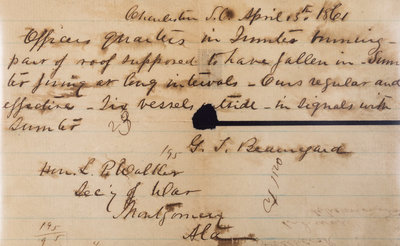 Charleston S.C. April 13th 1861
Officers quarters in Sumter burning -
part of roof supposed to have fallen in - Sum
ter firing at long intervals - Ours regular and
effective - Six vessels outside - in signals with
Sumter
23
195
G. T. Beauregard
Hon. L. P. Walker
Sec'y of War
Montgomery
Ala
195